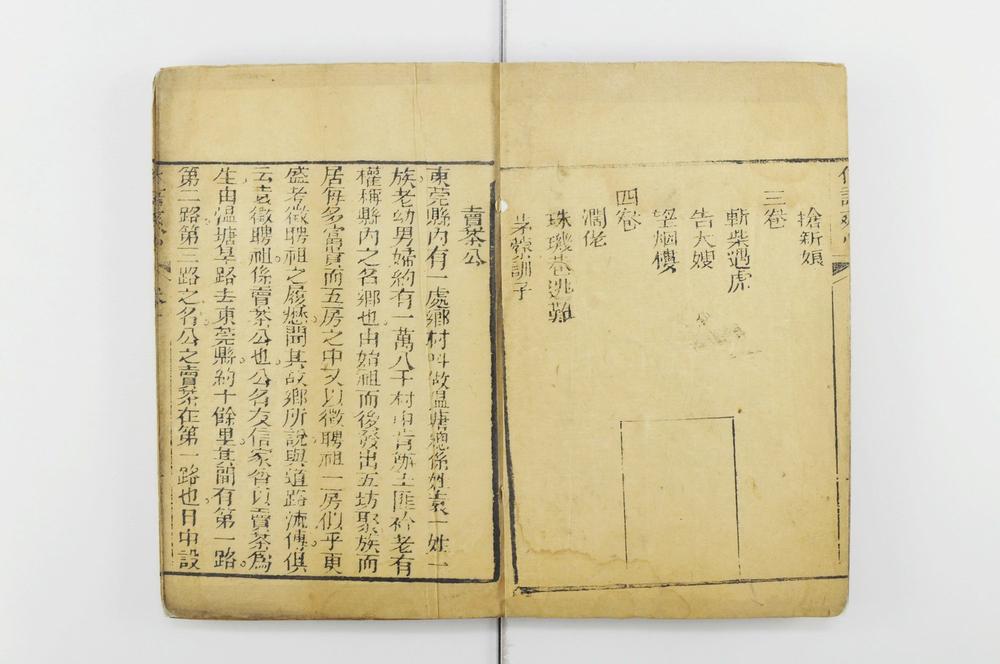 搶新娘
三卷
斬柴遇虎
告大嫂
望烟樓
四卷
濶佬
珠璣巷逃難
訓子
賣茶公
東莞縣內有一處鄉村呌做温塘總係姓袁一姓一
族老幼男婦約有一萬八千村中肯辦土匪衿老有
權稱縣內之名鄉也由始祖而後發出五坊聚族而
居每多富貴而五房之中又以徵聘祖一房似乎更
盛考徵聘祖之履歷問其故鄉所說與道路流傳俱
云袁徵聘祖係賣茶公也公名友信家窮以賣茶為
生由温塘旱路去東莞縣約十餘里其間有第一路
第二路第三路之名公之賣茶在第一路也日中設